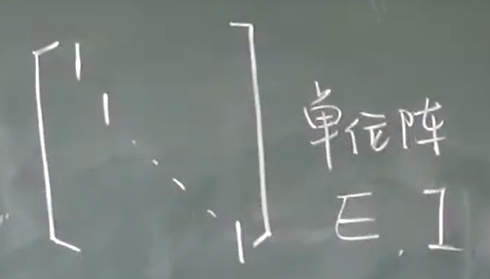 [1
1
⋱
1]
单位阵
E. I